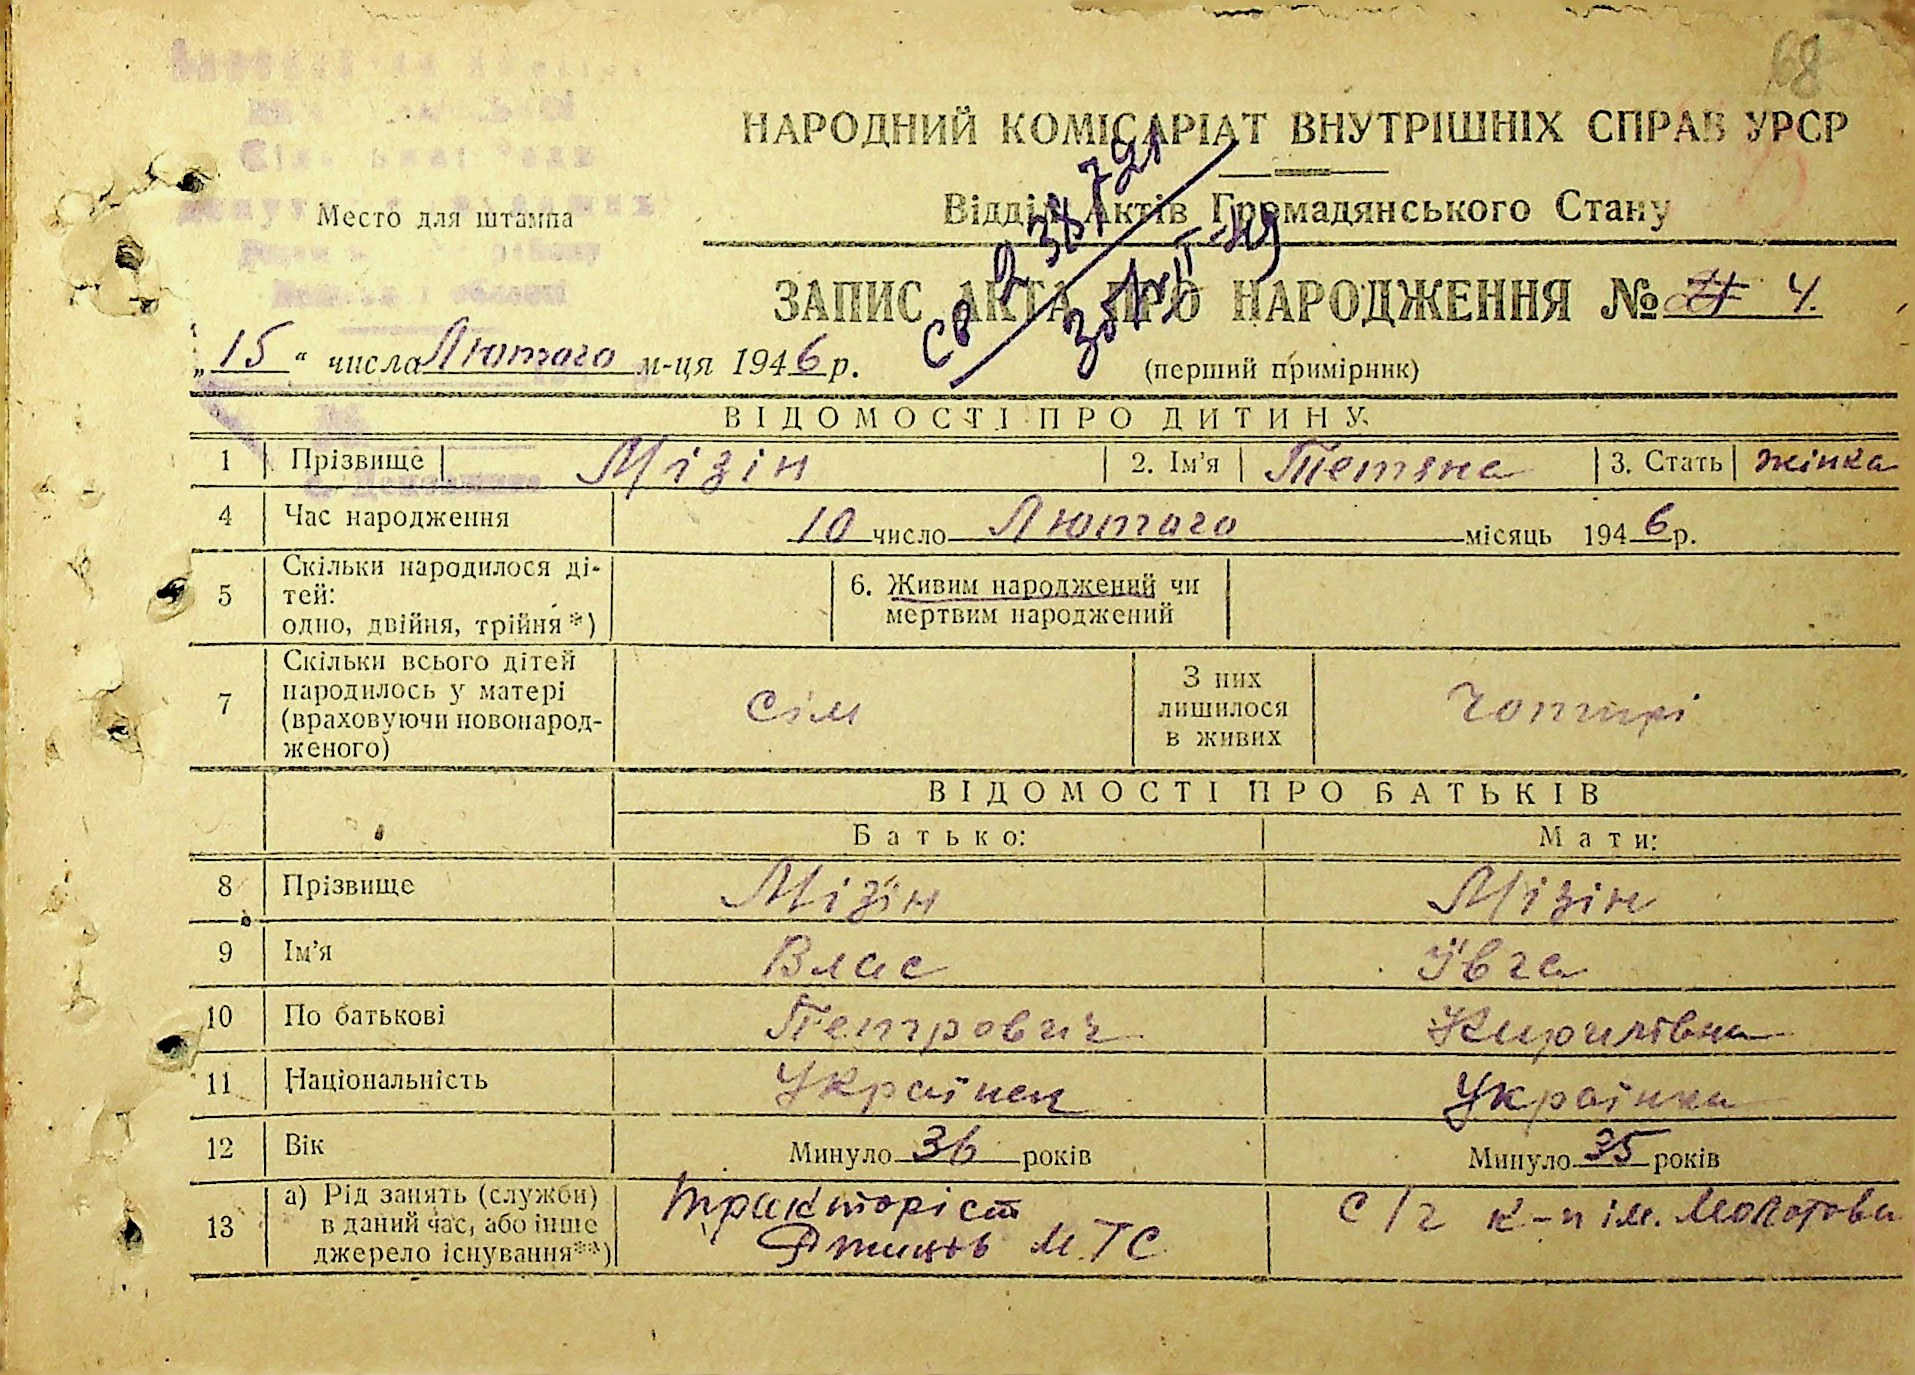 68
НАРОДНИЙ КОМІСАРІАТ ВНУТРІШНІХ СПРАВ УРСР
Відділ Актів Громадянського Стану
Место для штампа
ЗАПИС АКТА ПРО НАРОДЖЕННЯ № 4.
„15“ числа Лютого м-ця 1946 р.
(перший примірник)
ВІДОМОСТІ ПРО ДИТИНУ
1 Прізвище Мізін 2. Ім’я Тетяна 3. Стать жінка
4 Час народження 10 число Лютого місяць 1946 р.
5 Скільки народилося ді-
тей:
одно, двійня, трійня*)
6. Живим народжений чи
мертвим народжений
7 Скільки всього дітей
народилось у матері
(враховуючи новонарод-
женого)
сім
З них
лишилося
в живих
чотирі
ВІДОМОСТІ ПРО БАТЬКІВ
Батько: Мати:
8 Прізвище Мізін Мізін
9 Ім’я Влас Ївга
10 По батькові Петрович Кирилівна
11 Національність Українец Українка
12 Вік Минуло 36 років Минуло 35 років
13 а) Рід занять (служби)
в даний час, або інше
джерело існування**)
тракторіст
МТС
с/г к-п ім. Молотова